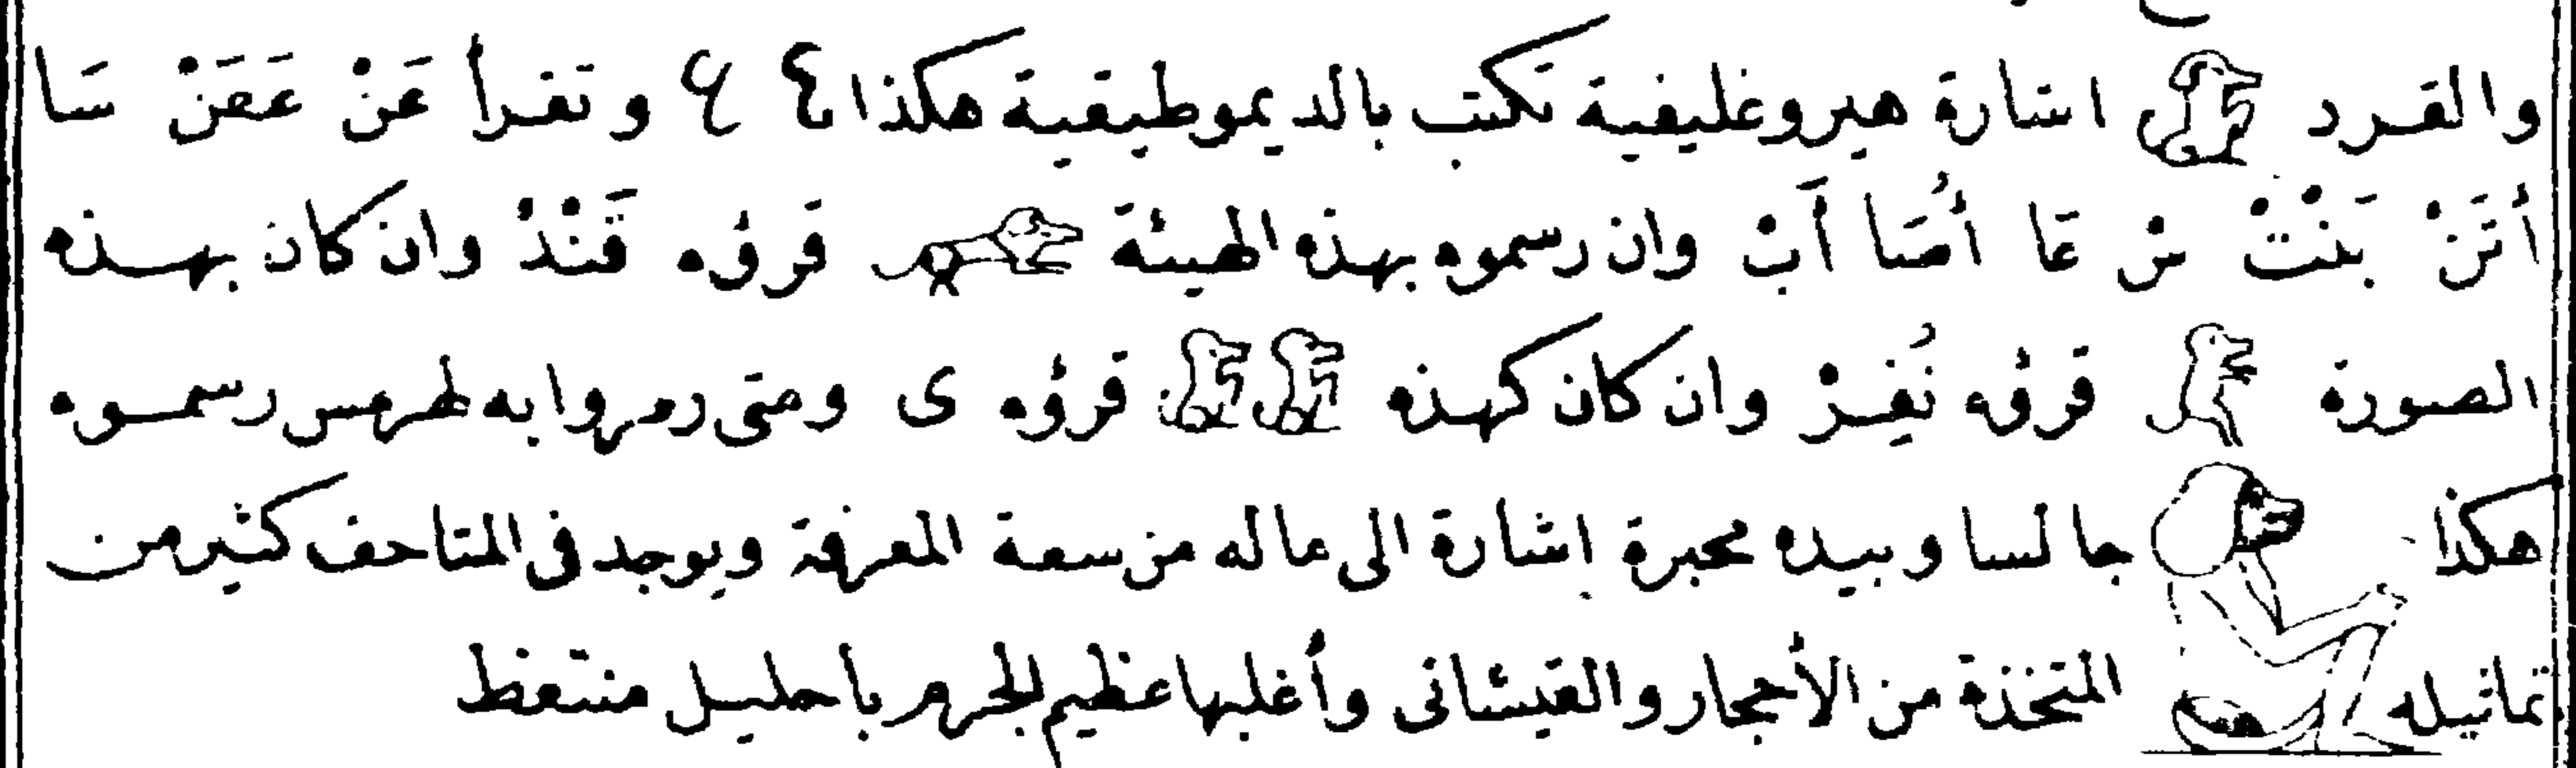 والقرد اشارة هيروغليفية تكتب بالديموطيقية هكذا وتقرأ عَنْ عَفَنْ سَا
أتَنْ بَنْتْ مْن عَا أُصَا آبْ وان رسموه بهذه الهيئة قرؤه قَنْدْ وان كان بهذه
الصورة قرؤه نُفِرْ وان كان كهذه قرؤه ى ومتى رمزوا به لهرمس رسموه
هكذا جالسا وبيده محبرة اشارة الى ماله من سعة المعرفة ويوجد فى المتاحف كثير من
تماثيله المتخذة من الأحجار والقيشانى وأغلبها عظيم الجرم باحليل منتعظ